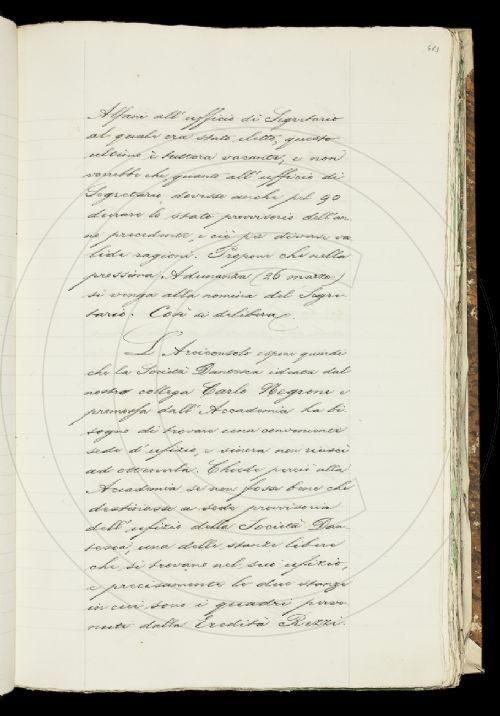 Alfani all'ufficio di Segretario
al quale era stato eletto, questo
ultimo è tuttora vacante, e non
vorrebbe che quanto all'ufficio di
Segretario dovesse anche pel 90
durare lo stato provvisorio dell'an-
no precedente, e ciò per diverse va-
lide ragioni. Propone che nella
prossima Adunanza (26 marzo)
si venga alla nomina del Segre-
tario. Così si delibera.
L'Arciconsolo espone quindi
che la Società Dantesca ideata dal
nostro collega Carlo Negroni e
promossa dall'Accademia ha bi-
sogno di trovare una conveniente
sede d'ufizio, e sinora non riuscì
ad ottenerla. Chiede perciò alla
Accademia se non fosse bene che
destinasse a sede provvisoria
dell'ufizio della Società Dan-
tesca, una delle stanze libere
che si trovano nel suo ufizio,
e precisamente le due stanze
in cui sono i quadri perve-
nuti dalla Eredità Rezzi.